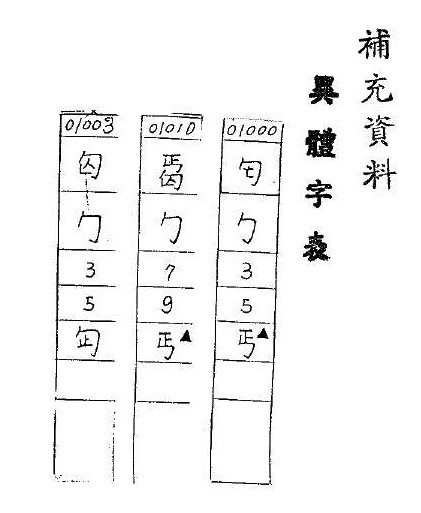 補充資料
異體字表
01000
勹
3
5
丐▲
01010
勹
7
9
丐▲
01003
勹
3
5